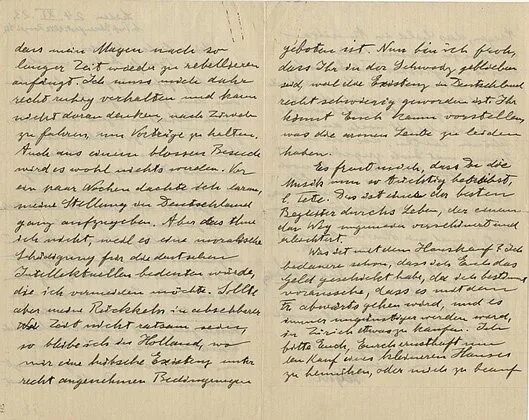 dass mein Magen nach so
langer Zeit wieder zu rebellieren
anfängt. Ich muss mich daher
recht ruhig verhalten und kann
nicht daran denken, nach Zürich
zu fahren, um Vorträge zu halten.
Auch aus einem blossen Besuch
wird es wohl nichts werden. Vor
ein paar Wochen dachte ich daran,
meine Stellung in Deutschland
ganz aufzugeben. Aber das thue
ich nicht, weil es eine moralische
Schädigung für die deutschen
Intellektuellen bedeuten würde,
die ich vermeiden möchte. Sollte
aber meine Rückkehr in absehbarer
Zeit nicht ratsam sein,
so bleibe ich in Holland, wo
mir eine hübsche Existenz unter
recht angenehmen Bedingungen
geboten ist. Nun bin ich froh,
dass Ihr in der Schweiz geblieben
seid, weil die Existenz in Deutschland
recht schwierig geworden ist. Ihr
könnt Euch kaum vorstellen,
was die armen Leute zu leiden
haben.
Es freut mich, dass Du die
Musik nun so tüchtig betreibst,
l. Tete. Das ist einer der besten
Begleiter durchs Leben, der einem
den Weg ungemein verschönert und
erleichtert.
Was ist mit dem Hauskauf? Ich
bedaure schon, dass ich Euch das
Geld geschickt habe, da ich bestimmt
voraussehe, dass es mit dem
Fr. abwärts gehen wird, und es
immer ungünstiger werden wird,
in Zürich etwas zu kaufen. Ich
bitte Euch, Euch ernsthaft um
den Kauf eines kleineren Hauses
zu bemühen, oder mich zu beauf